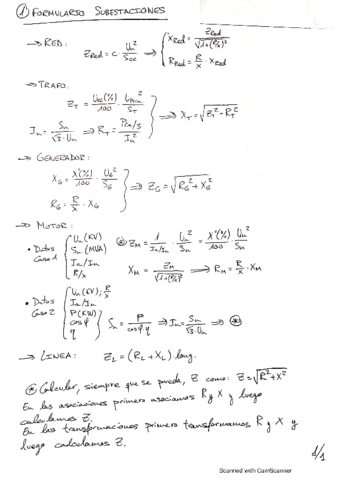 ① FORMULARIO SUBESTACIONES
→ RED: Z_Red = c · Un²/Scc ⟹ { X_Red = Z_Red/√(1+(R/X)²)
R_Red = R/X · X_Red
→ TRAFO:
Z_T = Ucc(%)/100 · U²/S_T
⟹ X_T = √(Z_T² - R_T²)
In = Sn/(√3·Un) ⟹ R_T = Pcu/3/In²
→ GENERADOR:
X_G = X"(%)/100 · U_G²/S_G
⟹ Z_G = √(R_G² + X_G²)
R_G = R/X · X_G
→ MOTOR:
• Datos Caso 1 { Un (KV)
Sn (MVA)
Ia/In
R/X
⊛ Z_M = 1/(Ia/In) · Un²/Sn = X"(%)/100 · Un²/Sn
X_M = Z_M/√(1+(R/X)²) ⟹ R_M = R/X · X_M
• Datos Caso 2 { Un (KV); R/X
Ia/In
P(KW)
cosφ
η
Sn = P/(cosφ·η) ⟹ In = Sn/(√3·Un) ⟹ ⊛
→ LINEA: Z_L = (R_L + X_L) · long.
⊛ Calcular, siempre que se pueda, Z como: Z = √(R² + X²)
En las asociaciones primero asociamos R y X y luego
calculamos Z.
En las transformaciones primero transformamos R y X y
luego calculamos Z.
1/1
Scanned with CamScanner